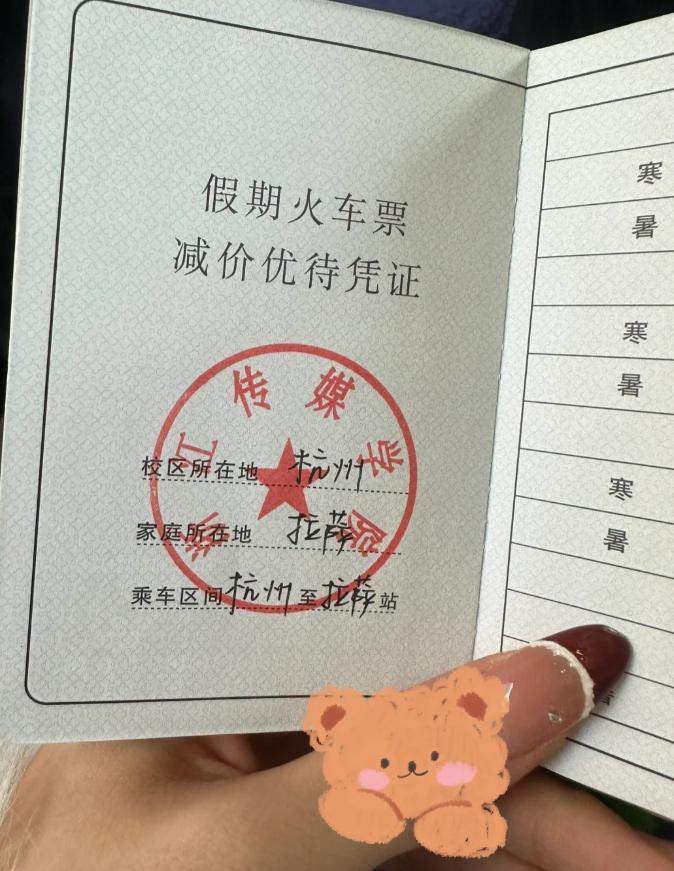 假期火车票
减价优待凭证
浙江传媒学院
校区所在地 杭州
家庭所在地 拉萨
乘车区间杭州至拉萨站
寒
暑
寒
暑
寒
暑